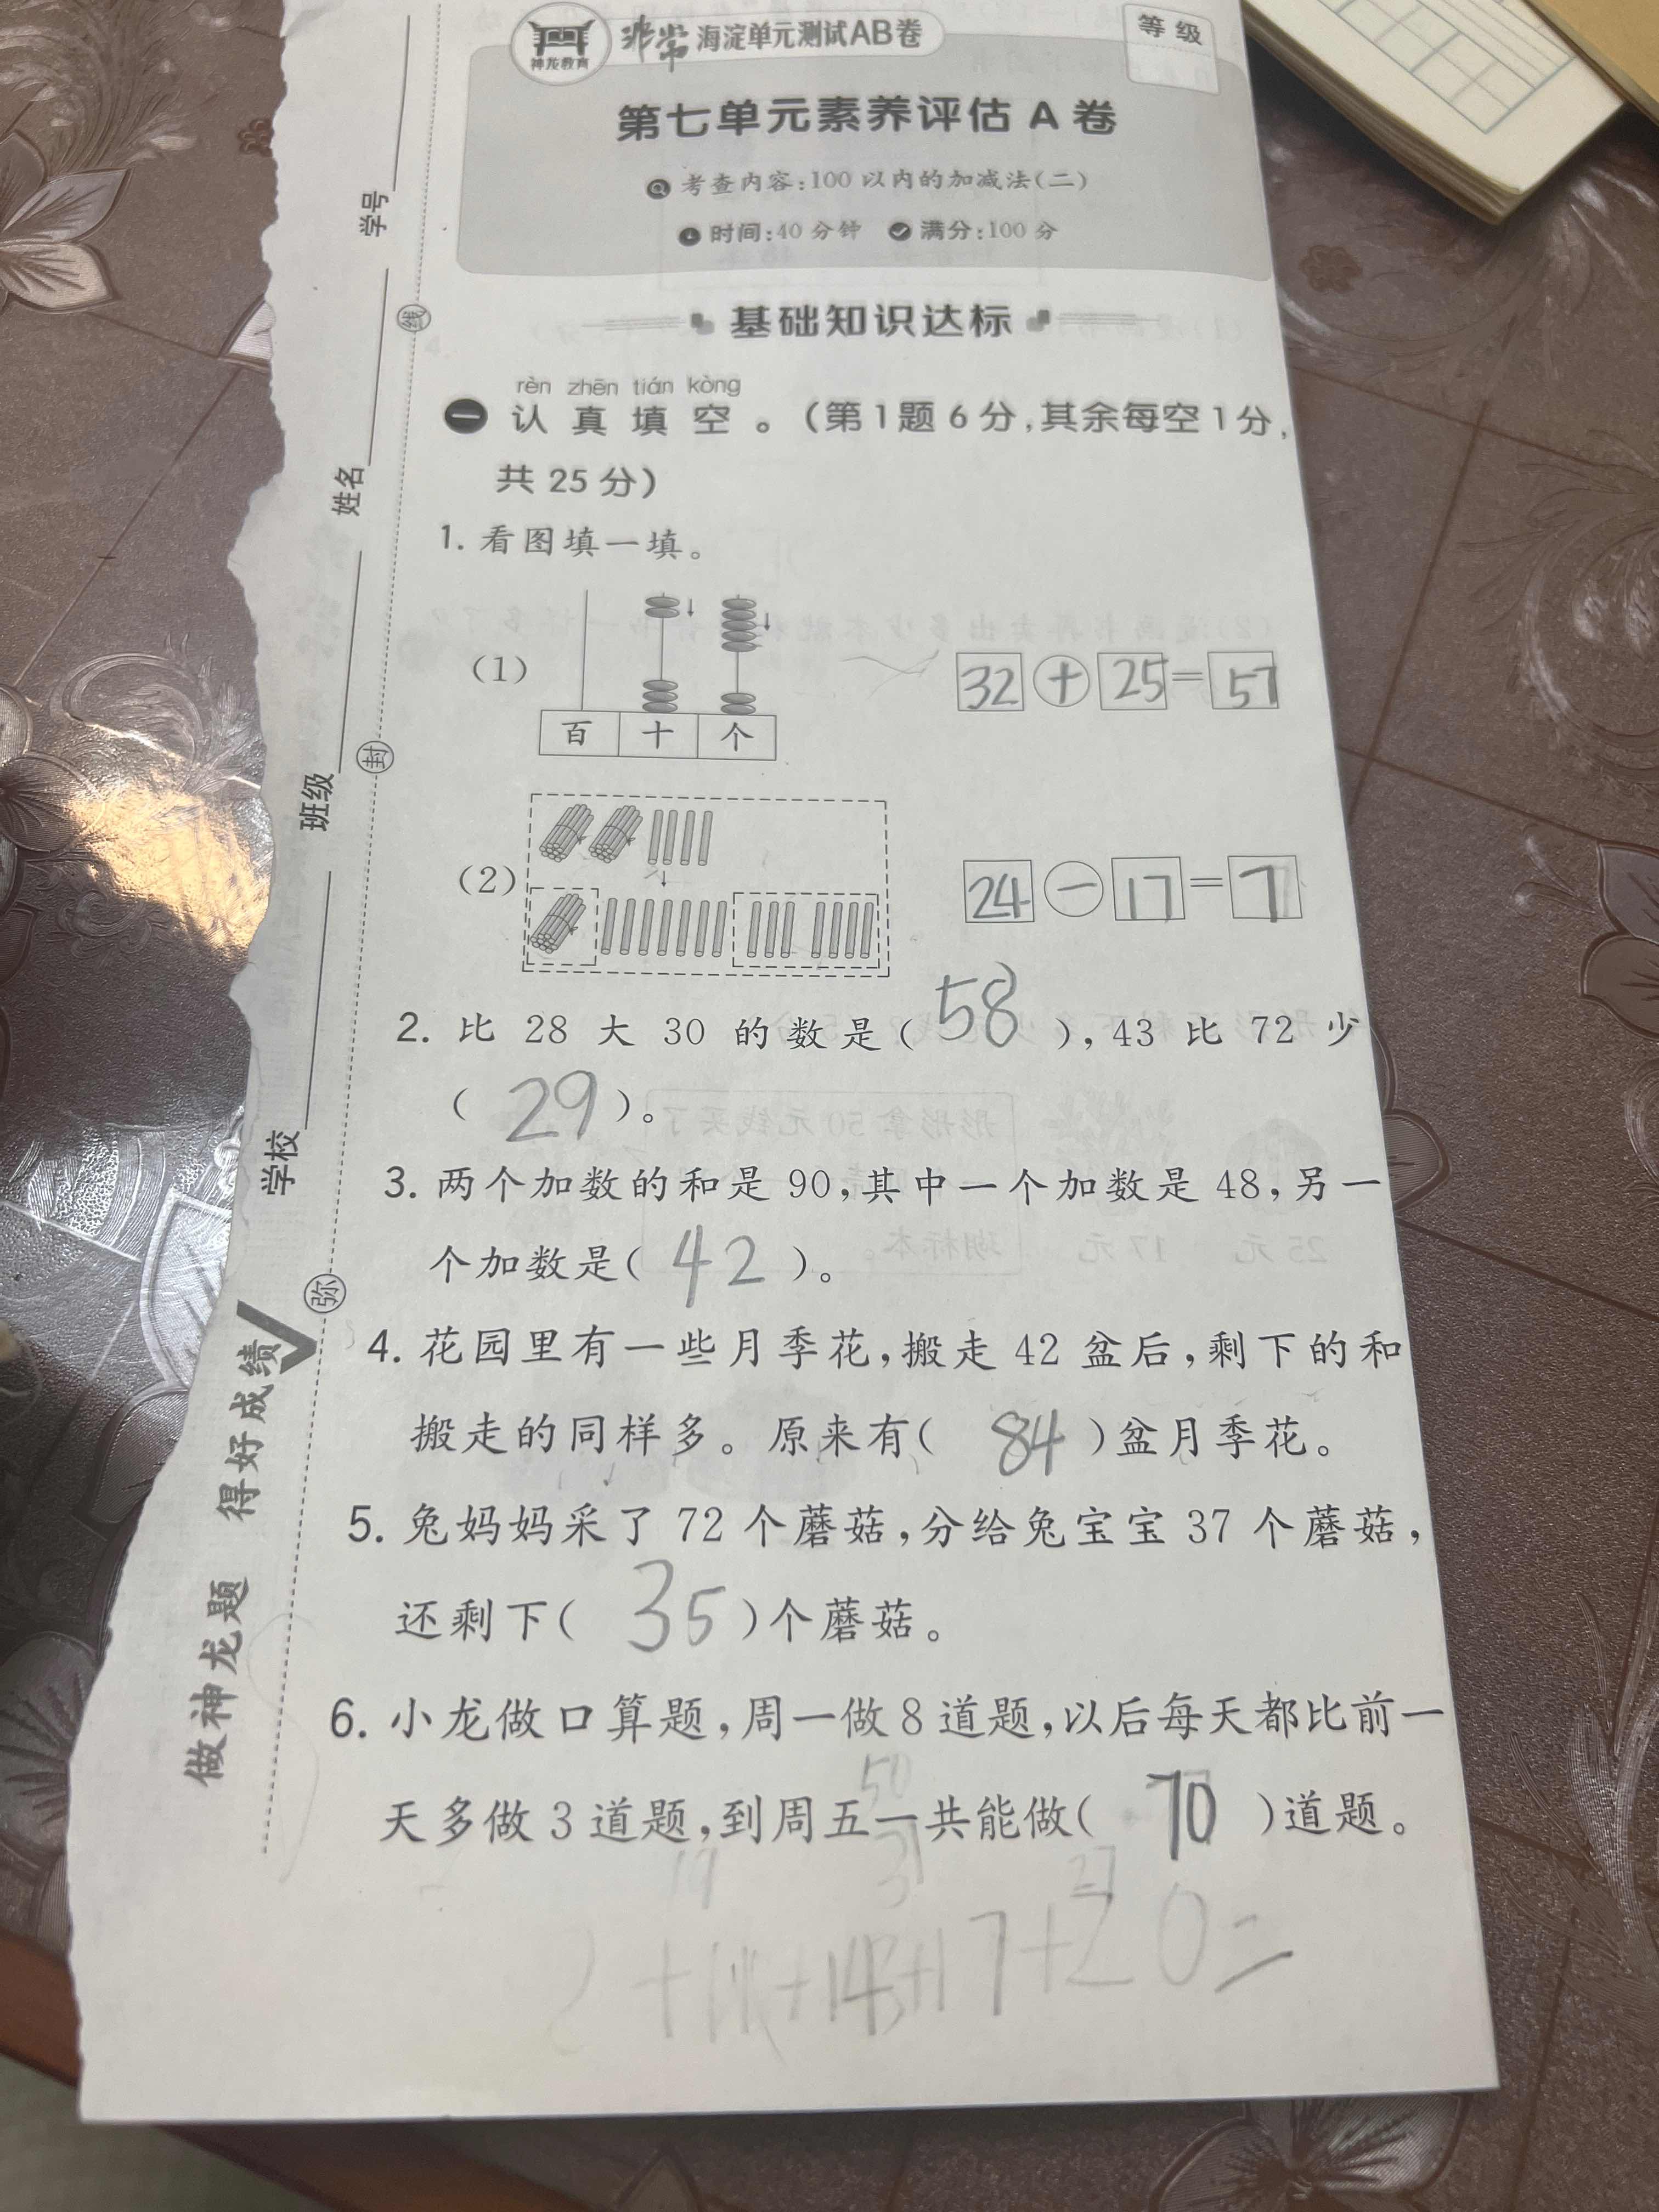 神龙教育
非常 海淀单元测试AB卷
等级
第七单元素养评估 A 卷
考查内容:100 以内的加减法(二)
时间:40 分钟 满分:100 分
基础知识达标
rèn zhēn tián kòng
一 认真填空。(第1题6分,其余每空1分,
共 25 分)
1. 看图填一填。
(1)
百 十 个
32 + 25 = 57
(2)
24 - 17 = 7
2. 比 28 大 30 的数是( 58 ),43 比 72 少
( 29 )。
3. 两个加数的和是 90,其中一个加数是 48,另一
个加数是( 42 )。
4. 花园里有一些月季花,搬走 42 盆后,剩下的和
搬走的同样多。原来有( 84 )盆月季花。
5. 兔妈妈采了 72 个蘑菇,分给兔宝宝 37 个蘑菇,
还剩下( 35 )个蘑菇。
6. 小龙做口算题,周一做 8 道题,以后每天都比前一
50
天多做 3 道题,到周五一共能做( 70 )道题。
+11+14+17+20=
学号
线
姓名
封
班级
学校
弥
做神龙题 得好成绩